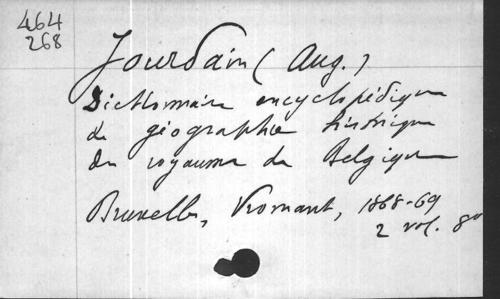 464
268
Jourdain (Aug.)
Dictionnaire encyclopédique
de géographie historique
du royaume de Belgique
Bruxelles, Vromant, 1868-69
2 vol. 8°